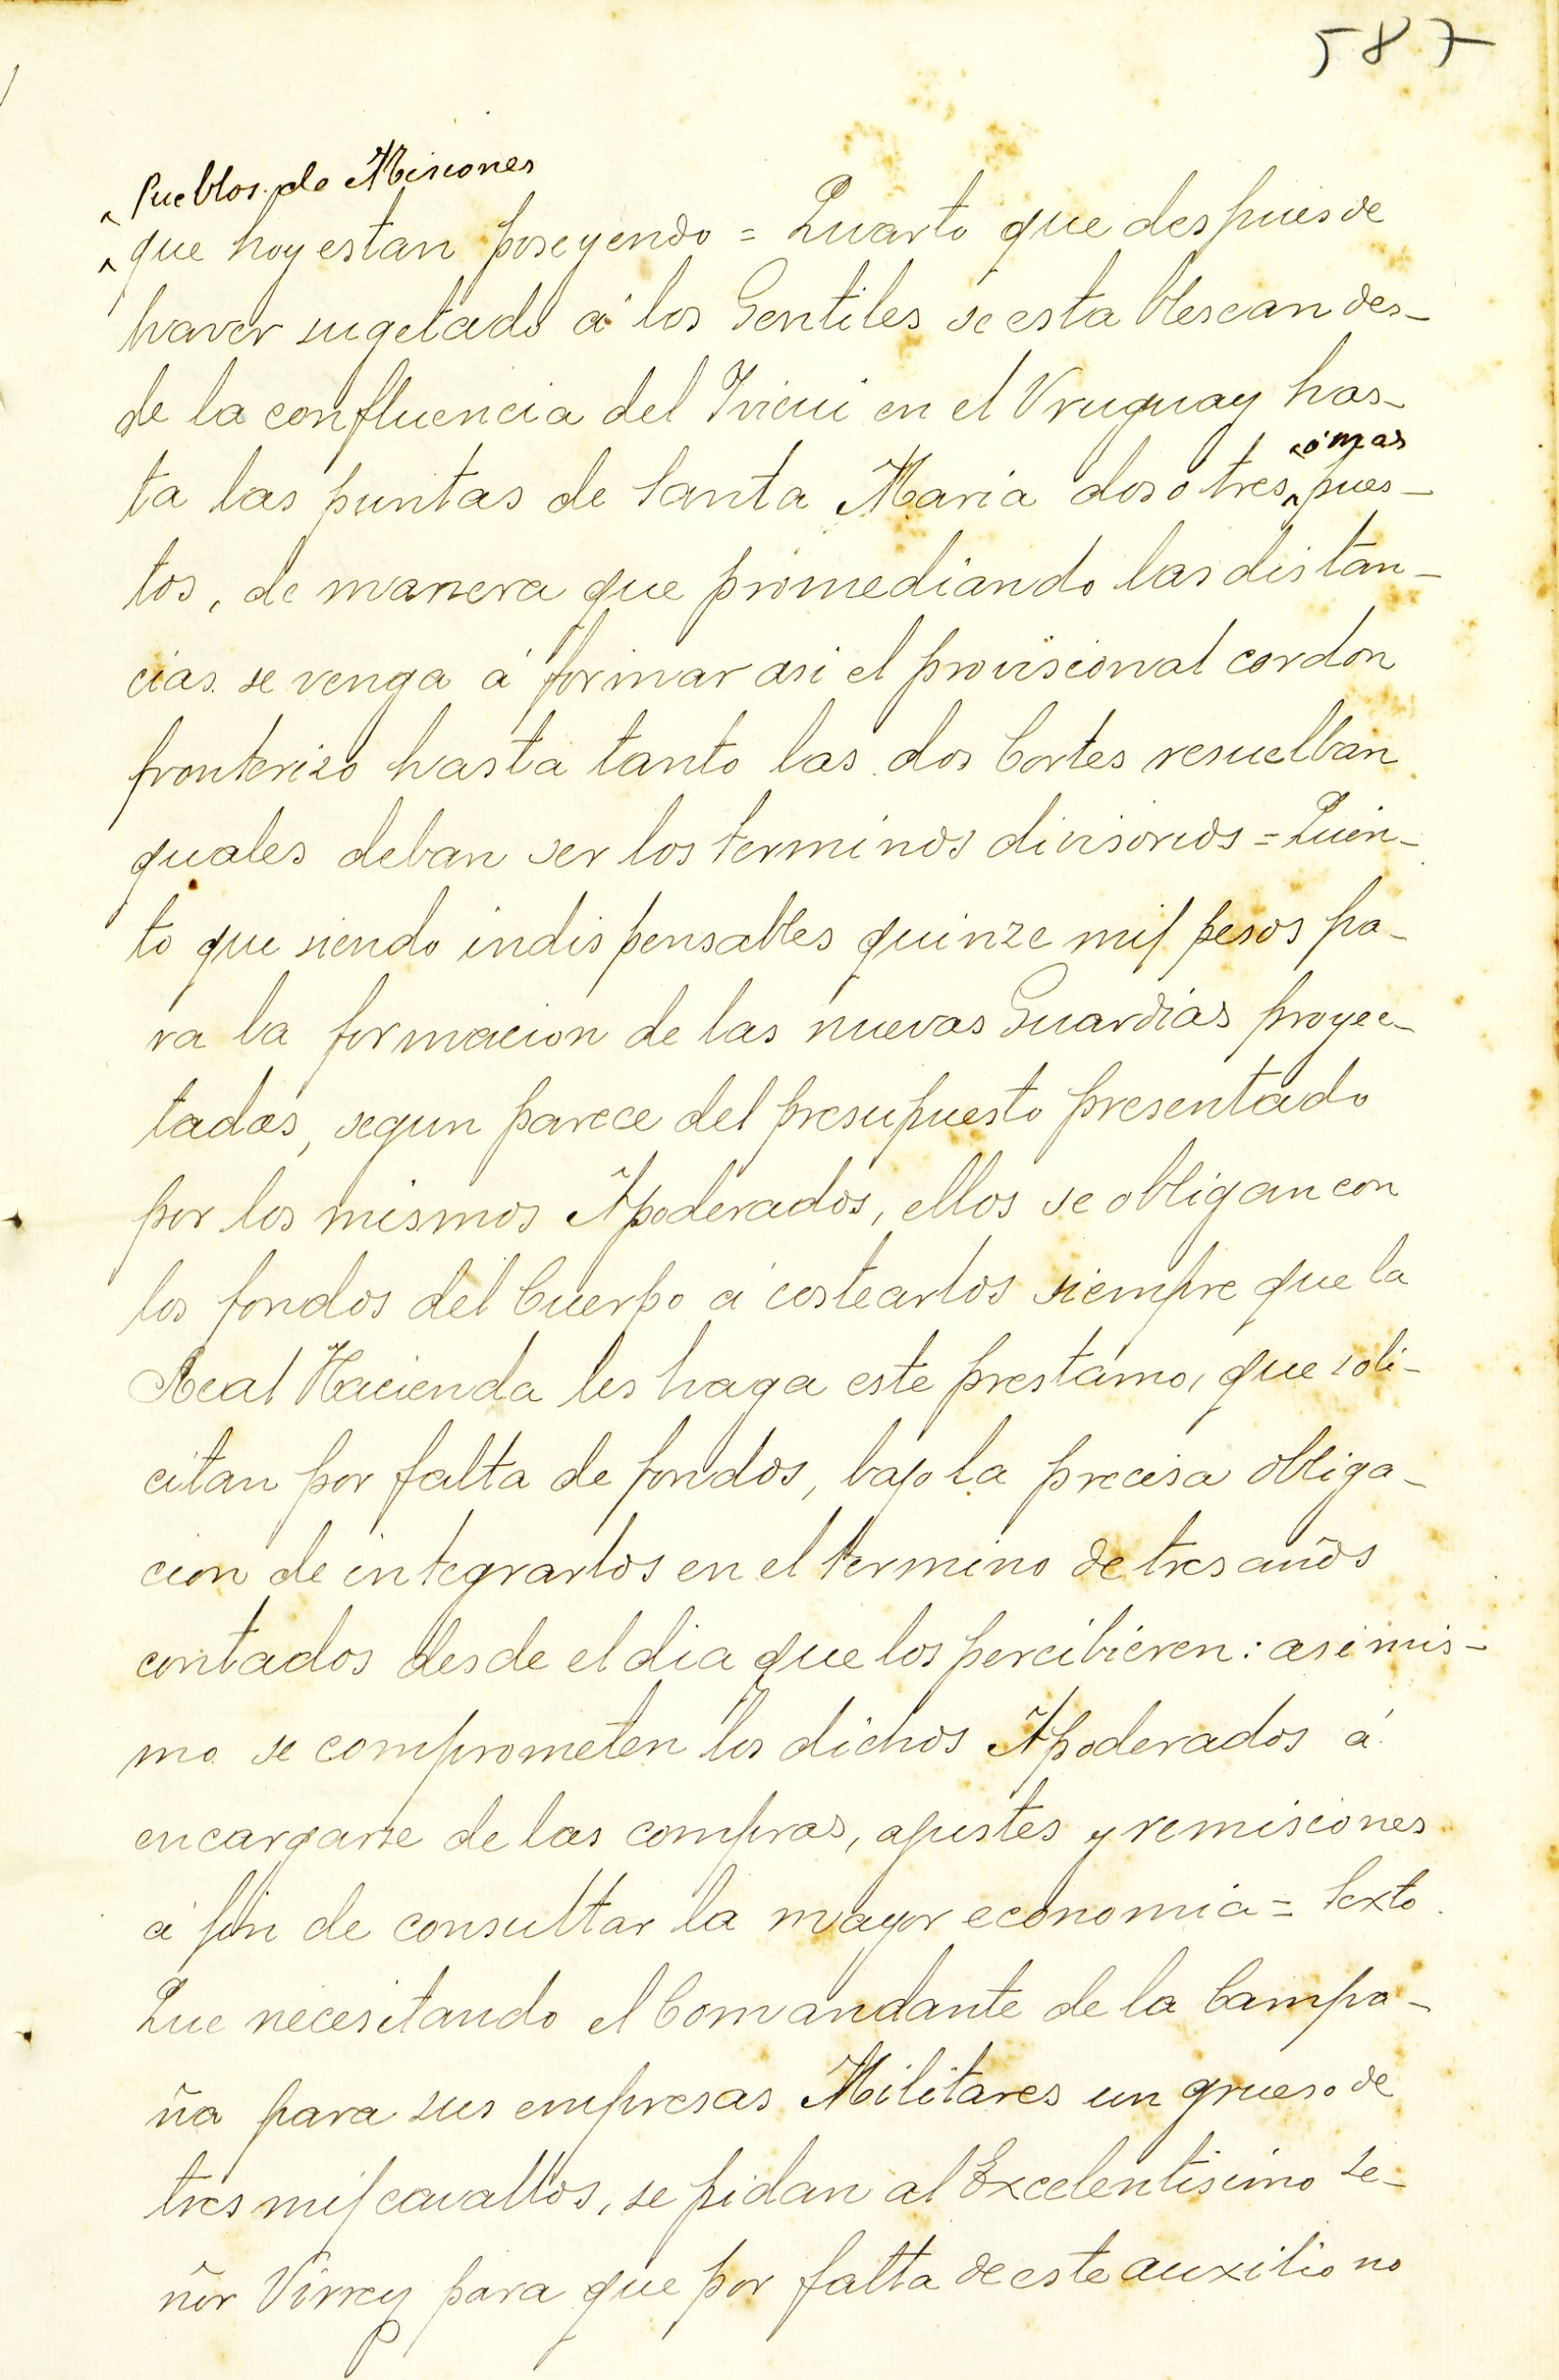 587
Pueblos de Misiones
que hoy estan poseyendo = Quarto que despues de
haver sugetado á los Gentiles se establescan des-
de la confluencia del Ivicui en el Vruguay has-
ó mas
ta las puntas de Santa Maria dos o tres pues-
tos, de manera que promediando las distan-
cias se venga á formar asi el provisional cordon
fronteriso hasta tanto las dos Cortes resuelban
quales deban ser los terminos divisorios = Quin-
to que siendo indispensables quinze mil pesos pa-
ra la formacion de las nuevas Guardias proyec-
tadas, segun parece del presupuesto presentado
por los mismos Apoderados, ellos se obligan con
los fondos del Cuerpo á costearlos siempre que la
Real Hacienda les haga este prestamo, que soli-
citan por falta de fondos, bajo la precisa obliga-
cion de integrarlos en el termino de tres años
contados desde el dia que los percibieren: asimis-
mo se comprometen los dichos Apoderados á
encargarse de las compras, ajustes y remisiones
á fin de consultar la mayor economia = Sexto
Que necesitando el Comandante de la Campa-
ña para sus empresas Militares un grueso de
tres mil cavallos, se pidan al Excelentisimo Se-
ñor Virrey para que por falta de este auxilio no